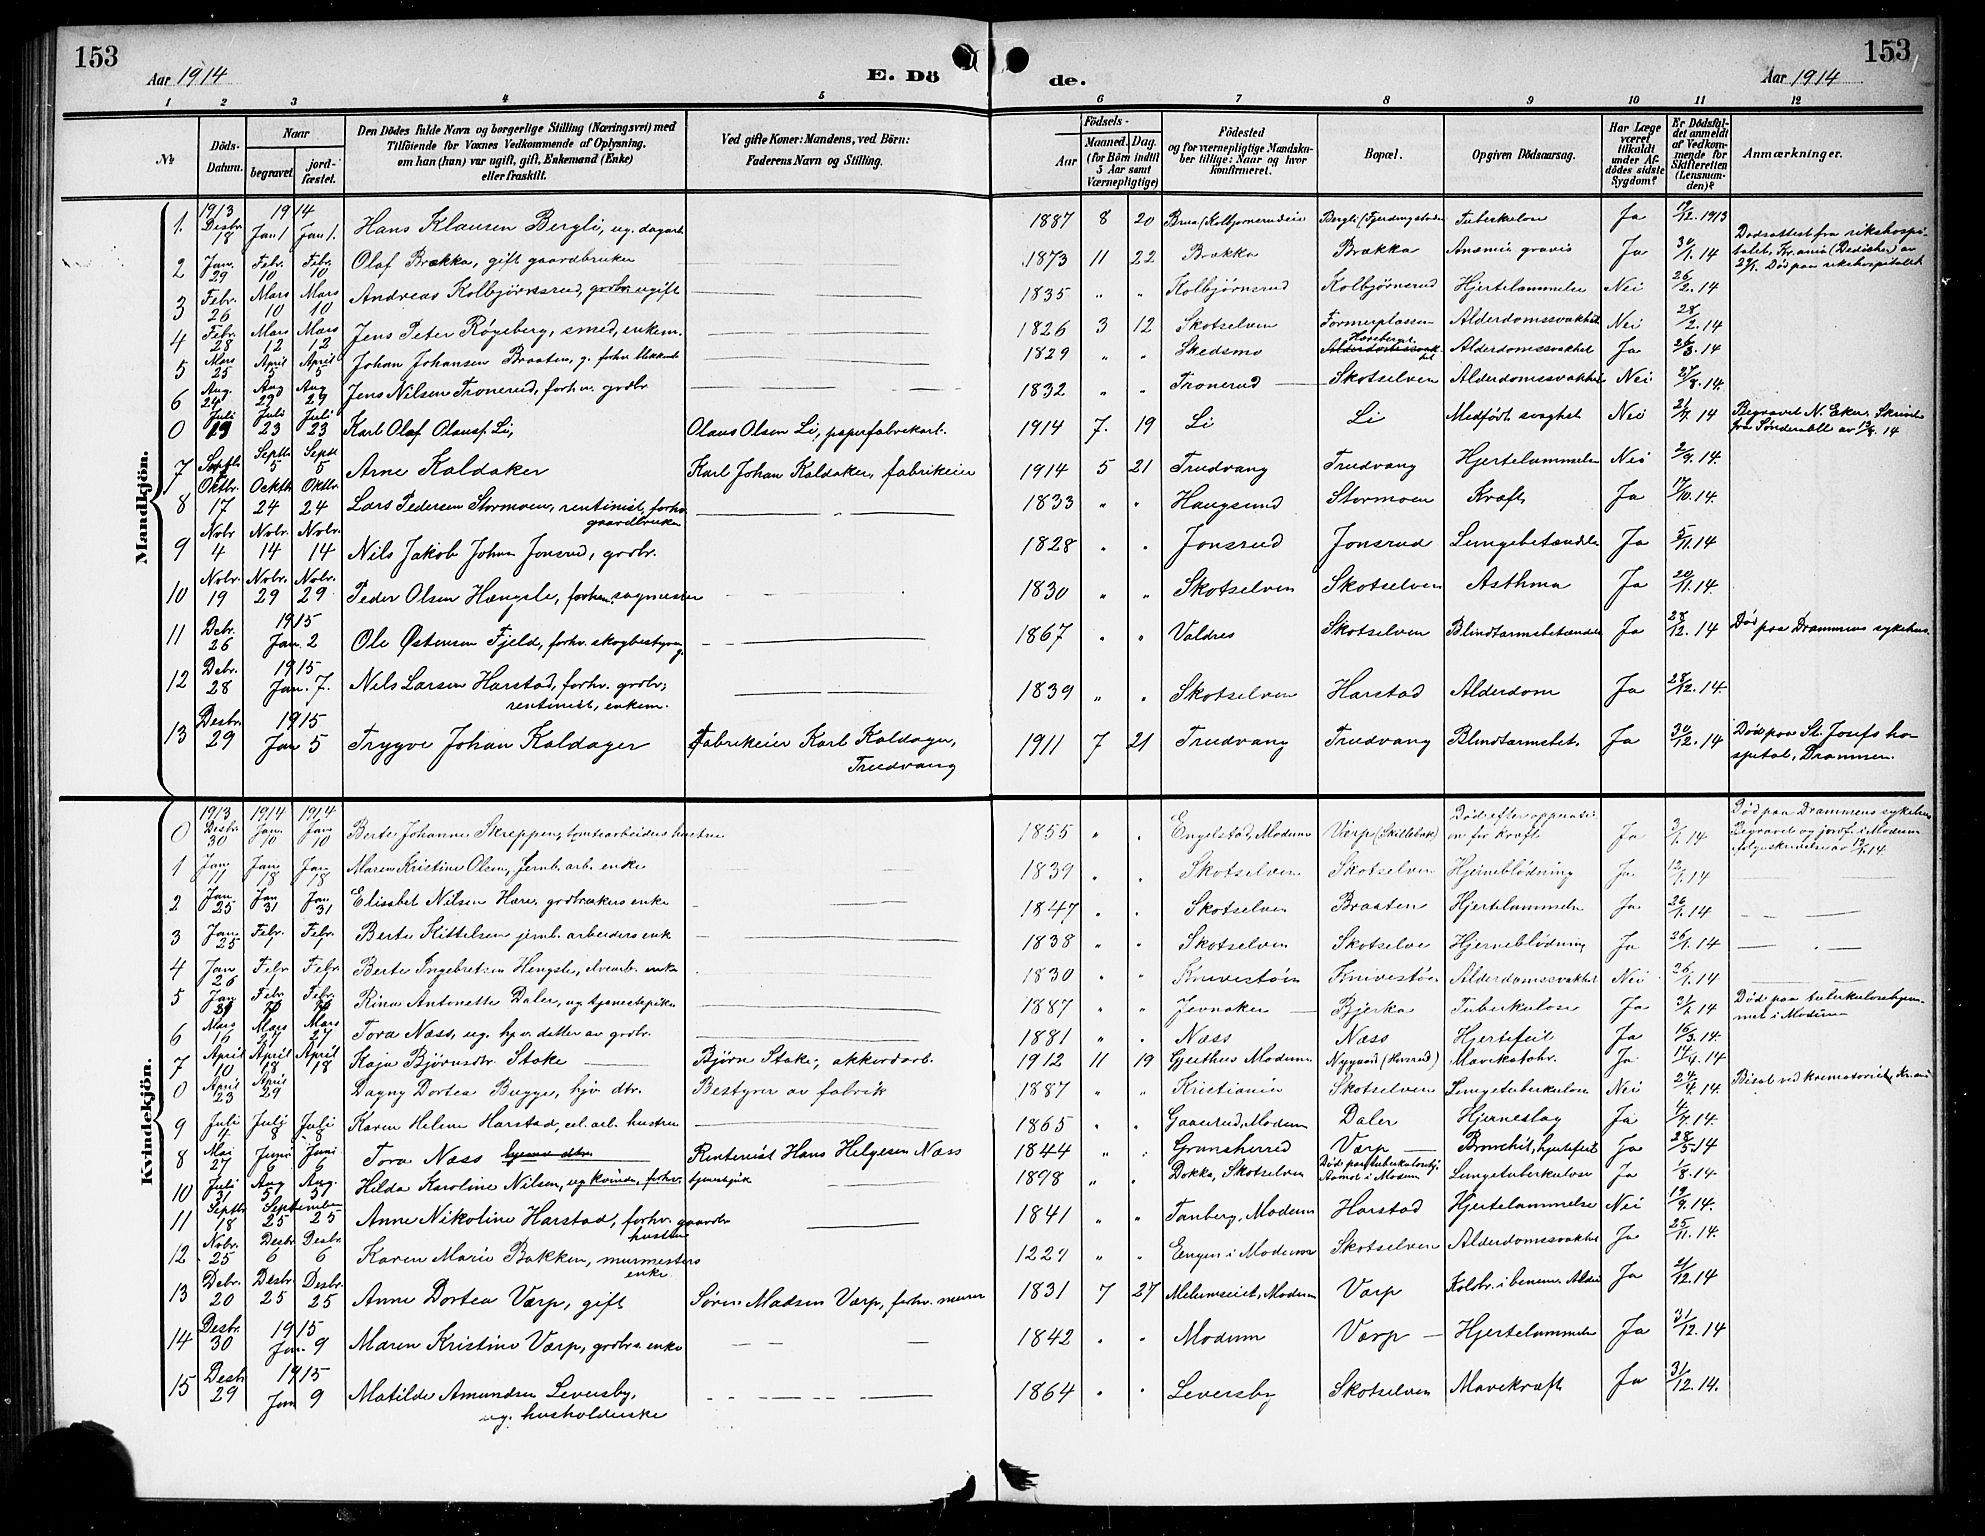 153
153
Aar 1914
E. Dö
de.
Aar 1914
1 2 3 4 5 6 7 8 9 10 11 12
№ Döds-Datum. Naar begravet jordfæstet. Den Dödes fulde Navn og borgerlige Stilling (Næringsvei) med Tilföiende for Voxnes Vedkommende af Oplysning, om han (hun) var ugift, gift, Enkemand (Enke) eller fraskilt. Ved gifte Koner: Mandens, ved Börn: Faderens Navn og Stilling. Födsels- Aar Maaned. Dag. (for Börn indtil 5 Aar samt Værnepligtige) Födested og for værnepligtige Mandskaber tillige: Naar og hvor konfirmeret. Bopæl. Opgiven Dödsaarsag. Har Læge været tilkaldt under Afdödes sidste Sygdom? Er Dödsfaldet anmeldt af Vedkommende for Skifteretten (Lensmanden)? Anmærkninger.
Mandkjön.
1. 1913 Desbr 18 1914 Jan 1 Jan 1. Hans Klausen Bergli, ug. dagarb. 1887 8 20 Brua (Kolbjørnrudeie Bergli (Fjerdingstaden Tuberkulose Ja 19/12. 1913
2 Jan. 29 Febr. 10 Febr. 10 Olaf Brække, gift gaardbruker 1873 11 22 Brækka Brækka Anæmie gravis Ja 30/1. 14 Dødsattest fra rikshospitalet, Kr.ania (Dedichen) av 29/1. Død paa rikshospitalet
3 Febr. 26 Mars 10 Mars 10 Andreas Kolbjørnsrud, grdbr. ugift 1835 " " Kolbjørnsrud Kolbjørnsrud Hjertelammelse Nei 26/2. 14
4 Febr. 28 Mars 12 Mars 12 Jens Peter Røgeberg, smed, enkem. 1826 3 12 Skotselven Formerplassen Alderdomssvakhet Nei 28/2. 14
5 Mars 25 April 5 April 5 Johan Johansen Braaten, g. forhv. blikkensl 1829 " " Skedsmo Alderdomssvakhet Alderdomssvakhet Ja 26/3. 14
6 Aug. 24 Aug 29 Aug 29 Jens Nilsen Tronerud, forhv. grdbr 1832 " " Tronerud Skotselven Alderdomssvakhet Nei 27/8. 14.
0 Juli 19 Juli 23 Juli 23 Karl Olaf Olausf. Li, Olaus Olsen Li, papirfabrikarb. 1914 7. 19 Li Li Medfødt svaghet Nei 21/7. 14 Begravet N. Eker. Skrivelse fra Sønderabll av 14
7 Septb. Septb 5 Septb 5 Arne Kaldaker Karl Johan Kaldaker, fabrikeier 1914 5 21 Trudvang Trudvang Hjertelammelse Nei 2/9. 14.
8 Oktbr. 17 Ocktb 24 Oktbr. 24 Lars Pedersen Stormoen, rentinist, forhv. gaardbruker 1833 " " Haugsund Stormoen Kræft Ja 17/10. 14.
9 Nobr 4 Nobr. 14 Nobr. 14 Nils Jakob Johns Jonsrud, grdbr. 1828 " " Jonsrud Jonsrud Lungebetændelse Ja 5/11. 14
10 Nobr. 19 Nobr. 29 Nobr. 29 Peder Olsen Hængsle, forhen. sagmester 1830 " " Skotselven Skotselven Asthma Ja 20/11. 14.
11 Debr. 26 1915 Jan. 2 Ole Østensen Fjeld, forhv. skogbestyrer, g. 1867 " " Valdres Skotselven Blindtarmsbetændelse Ja 28/12. 14 Død paa Drammens sykehus
12 Debr. 28 1915 Jan. 7. Nils Larsen Harstad, forhv. grdbr; rentinist, enkem. 1839 " " Skotselven Harstad Alderdom Ja 28/12. 14.
13 Desbr. 29 1915 Jan 5 Trygve Johan Kaldager Fabrikeier Karl Kaldager, Trudvang 1911 7 21 Trudvang Trudvang Blindtarmsbet. Ja 30/12. 14 Død paa St. Josefs hospital, Drammen.
Kvindekjön.
0 1913 Desbr 30 1914 Jan. 10 1914 Jan 10 Berte Johanne Skreppen, tomtearbeiders hustru 1855 " " Engelstad, Modum Værp (Skillebæk) Død efter operation for kræft Ja 3/1. 14 Død paa Drammens sykehus Begravet og jordf. i Modum følgeskrivelse av 12/1. 14.
1 Jan 11 Jan 18 Jan 18 Maren Kristine Olsen, Jernb. arb. enke 1839 " " Skotselven Skotselven Hjerneblødning Ja. 12/1. 14
2 Jan. 25 Jan 31 Jan. 31 Elisabet Nilsen Hære, grdbrukers enke 1847 " " Skotselven Braaten Hjertelammelse Ja. 26/1. 14
3 Jan. 25 Febr. Febr. Berte Kittelsen jernb. arbeiders enk 1838 " " Skotselven Skotselve Hjerneblødning Ja 26/1. 14
4 Jan 26 Febr Febr. Berte Ingebretsen Hengsle, elvearb. enke 1830 " " Knivestøen Knivestøen Alderdomssvakhet Nei 26/1. 14
5 Jan Febr. Febr. Rina Antonette Daler, ug. tjenestepike 1887 " " Jevnaker Bjerka Tuberkulose Ja 14 Død paa tuberkulosehjemmet i Modum
6 Mars 16 Mars 27 Mars 27 Tora Næss, ug. hjv. datter av grdbr. 1881 " " Næss Næss Hjertefeil Ja 16/3. 14.
7 April 10 April 18 April 18 Kaja Bjørnsdtr. Stake Bjørn Stake, akkordarb. 1912 11 19 Gjethus Modum Nygaard (Horsrud) Mavekatahr. Ja. 14/4. 14
0 April 23 April 29 Dagny Dortea Bugge, hjv. dtr. Bestyrer av fabrik 1887 " " Kristiania Skotselven Lungetuberkulose Nei 24/4. 14. Bisat ved krematoriet, Kr.ania
9 Juli 4 Julj 8 Juli 8 Karen Helene Harstad, el. arb. hustru 1865 " " Gaaserud, Modum Daler Hjerneslag Ja 4/7. 14.
8 Mai 27 Juni 6 Juni 6 Tora Næss hjemv. dtr. Rentenist Hans Helgesen Næss 1844 " " Gransherred Værp Bronchit, hjertefeil Ja 28/5. 14
10 Juli 31 Aug 5 Aug. 5 Hilda Karoline Nilsen, ug kvinde, forhv. tjenestpik 1898 " " Dokka, Skotselven Død paa tuberkulosehj. Aamot i Modum Lungetuberkulose Ja 1/8. 14.
11 Septb. 18 September 25 25 Anne Nikoline Harstad, forhv. gaardbr hustru 1841 " " Tanberg, Modum Harstad Hjertelammelse Nei 19/9. 14.
12 Nobr. 25 Desbr 6 Desbr. 6 Karen Marie Bakken, murmesters enke 1229 " " Eengen i Modum Skotselven Alderdomssvakhet Ja. 25/11. 14.
13 Debr. 20 Desbr 25 Desbr. 25 Anne Dortea Værp, gift Søren Madsen Værp, forhv. murer 1831 7 27 Melumseiet, Modum Værp Koldbr. i benene. Alderd Ja 21/12. 14
14 Desbr. 30 1915 Jan. 9 Maren Kristine Værp, grdbrs. enke 1842 " " Modum Værp Hjertelammelse Ja 31/12. 14
15 Desbr 29 1915 Jan 9 Matilde Amundsen Leversby, ug. husholderske 1864 " " Leversby Skotselven Mavekræft Ja 31/12. 14.